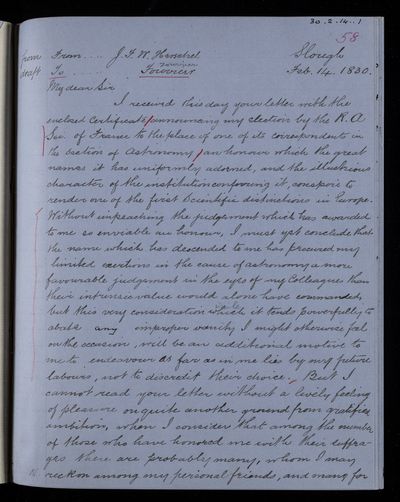 30.2.14..1
58
from From .... J. F. W. Herschel Slough
draft To .... Fourier Feb. 14. 1830.
My dear Sir
I received this day your letter with the
enclosed Certificate announcing my election by the R. A
Soc. of France to the place of one of its correspondents in
the Section of Astronomy, an honour which the great
names it has uniformly adorned, and the illustrious
character of the institution conferring it, conspire to
render one of the first scientific distinctions in Europe.
Without impeaching the judgement which has awarded
to me so enviable an honour, I must yet conclude that
the name which has descended to me has procured my
limited exertions in the cause of astronomy a more
favourable judgement in the eyes of my Colleagues than
their intrinsic value would alone have commanded,
but this very consideration which it tends powerfully to
abate any improper vanity I might otherwise feel
on the occasion, will be an additional motive to
me to endeavour as far as in me lie by my future
labours, not to discredit their choice. But I
cannot read your letter without a lively feeling
of pleasure on quite another ground from gratified
ambition, when I consider that among the number
of those who have honored me with their suffra-
ges there are probably many, whom I may
reckon among my personal friends, and many for